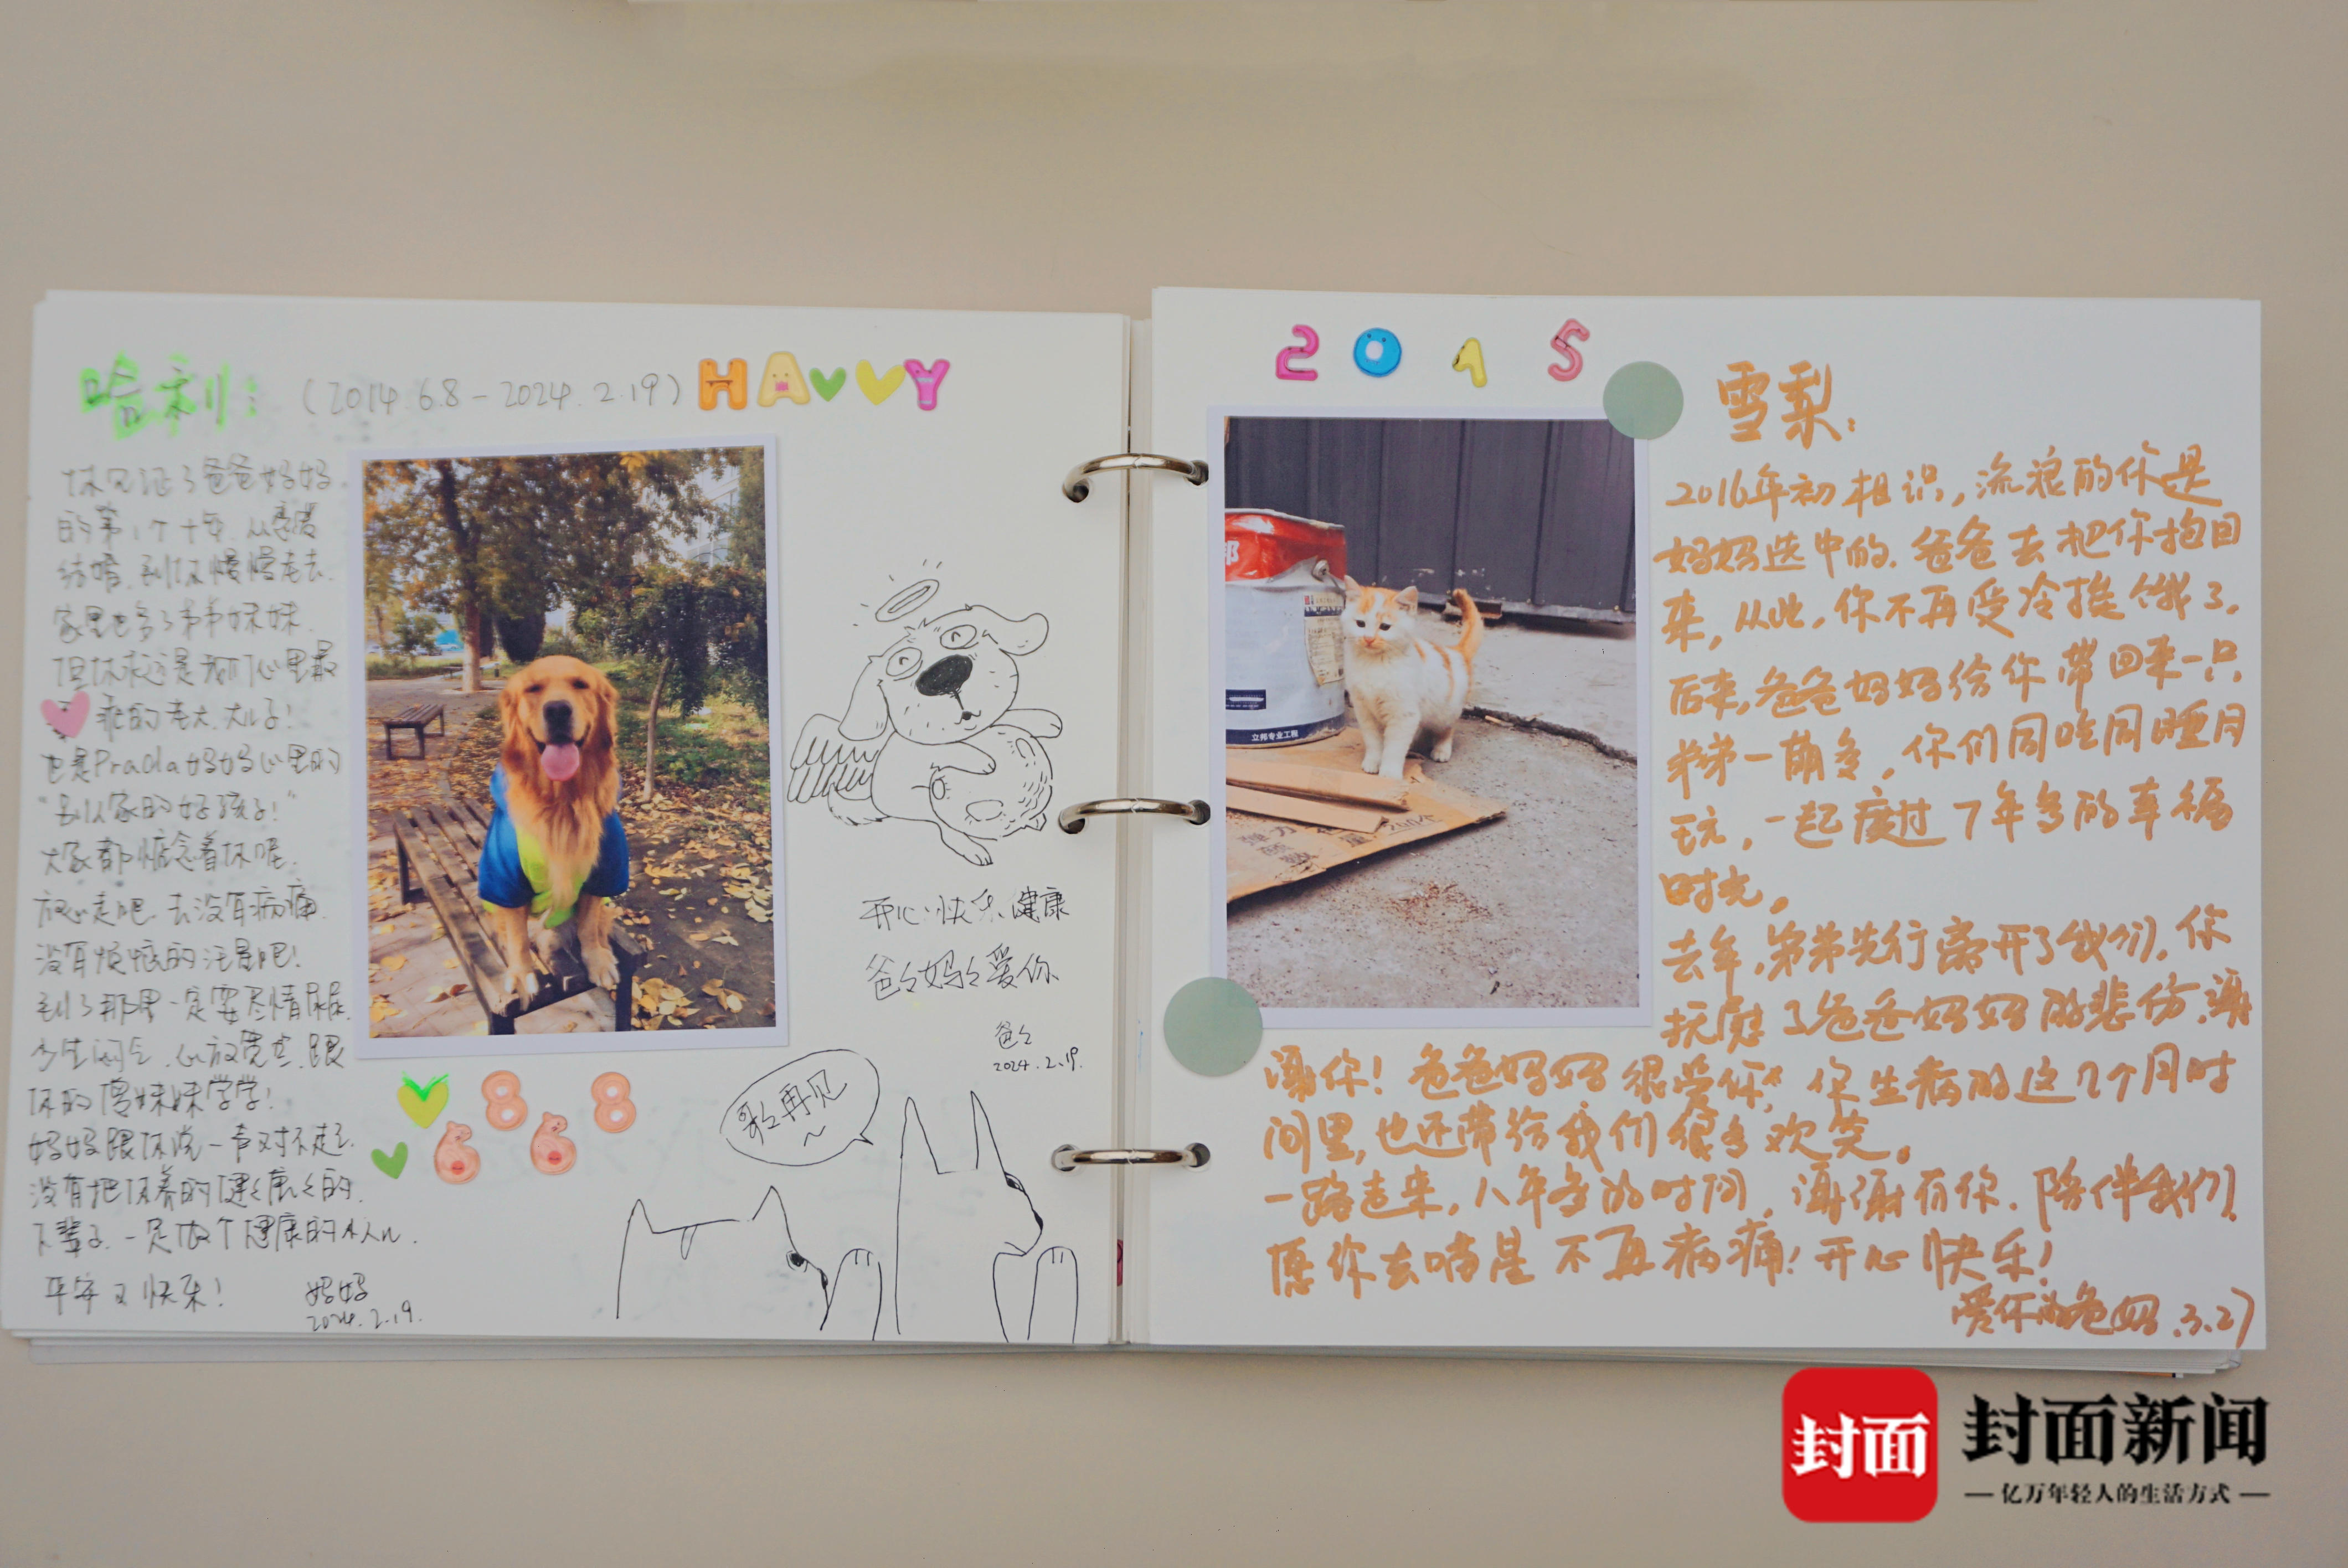 哈利：
(2014.6.8-2024.2.19)
HA Y
你见证了爸爸妈妈
的第1个十年.从恋爱
结婚.到你慢慢老去.
家里也多了弟弟妹妹.
但你永远是我们心里最
乖的老大.大儿子!
也是Prada妈妈心里的
"别人家的好孩子!"
大家都惦念着你呢.
放心走吧.去没有病痛
没有烦恼的汪星吧!
到了那里一定要尽情
少生闷气.心放宽些.跟
你的傻妹妹学学!
妈妈跟你说一声对不起.
没有把你养的健健康康的.
下辈子.一定做个健康的小人儿.
平安又快乐!
妈妈
2024.2.19.
开心、快乐、健康
爸爸妈妈爱你
爸爸
2024.2.19.
歌歌再见
~
8 8
6 6
2015
雪梨：
2016年初相识,流浪的你是
妈妈选中的.爸爸去把你抱回
来,从此,你不再受冷挨饿了.
后来,爸爸妈妈给你带回来一只
弟弟一萌多,你们同吃同睡同
玩,一起度过7年多的幸福
时光。
去年,弟弟先行离开了我们.你
抚慰了爸爸妈妈的悲伤.谢
谢你!爸爸妈妈很爱你,你生病的这几个月时
间里,也还带给我们很多欢笑。
一路走来,八年多的时间,谢谢有你.陪伴我们.
愿你去喵星不再病痛!开心快乐!
爱你的爸妈.3.27
立邦专业工程
封面
封面新闻
亿万年轻人的生活方式